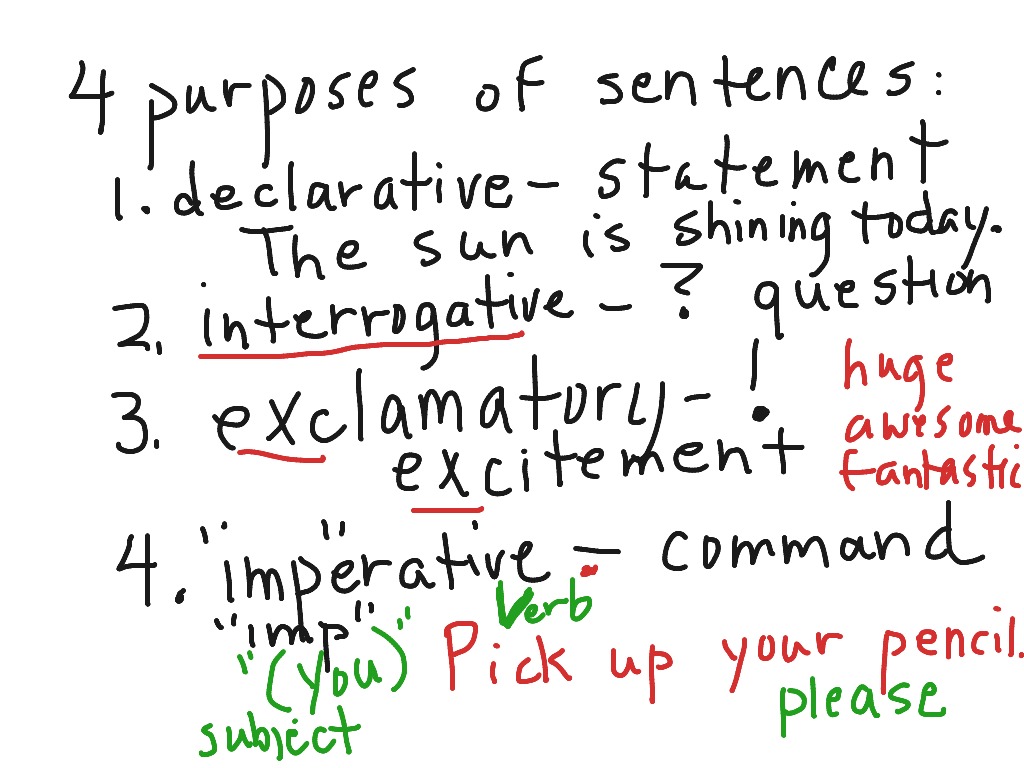 4 purposes of sentences:
1. declarative - statement
The sun is shining today.
2. interrogative - ? question
3. exclamatory - !
excitement
huge
awesome
fantastic
4. "imp"erative - command
"imp"
"(you)" Pick up your pencil.
Verb
subject
please